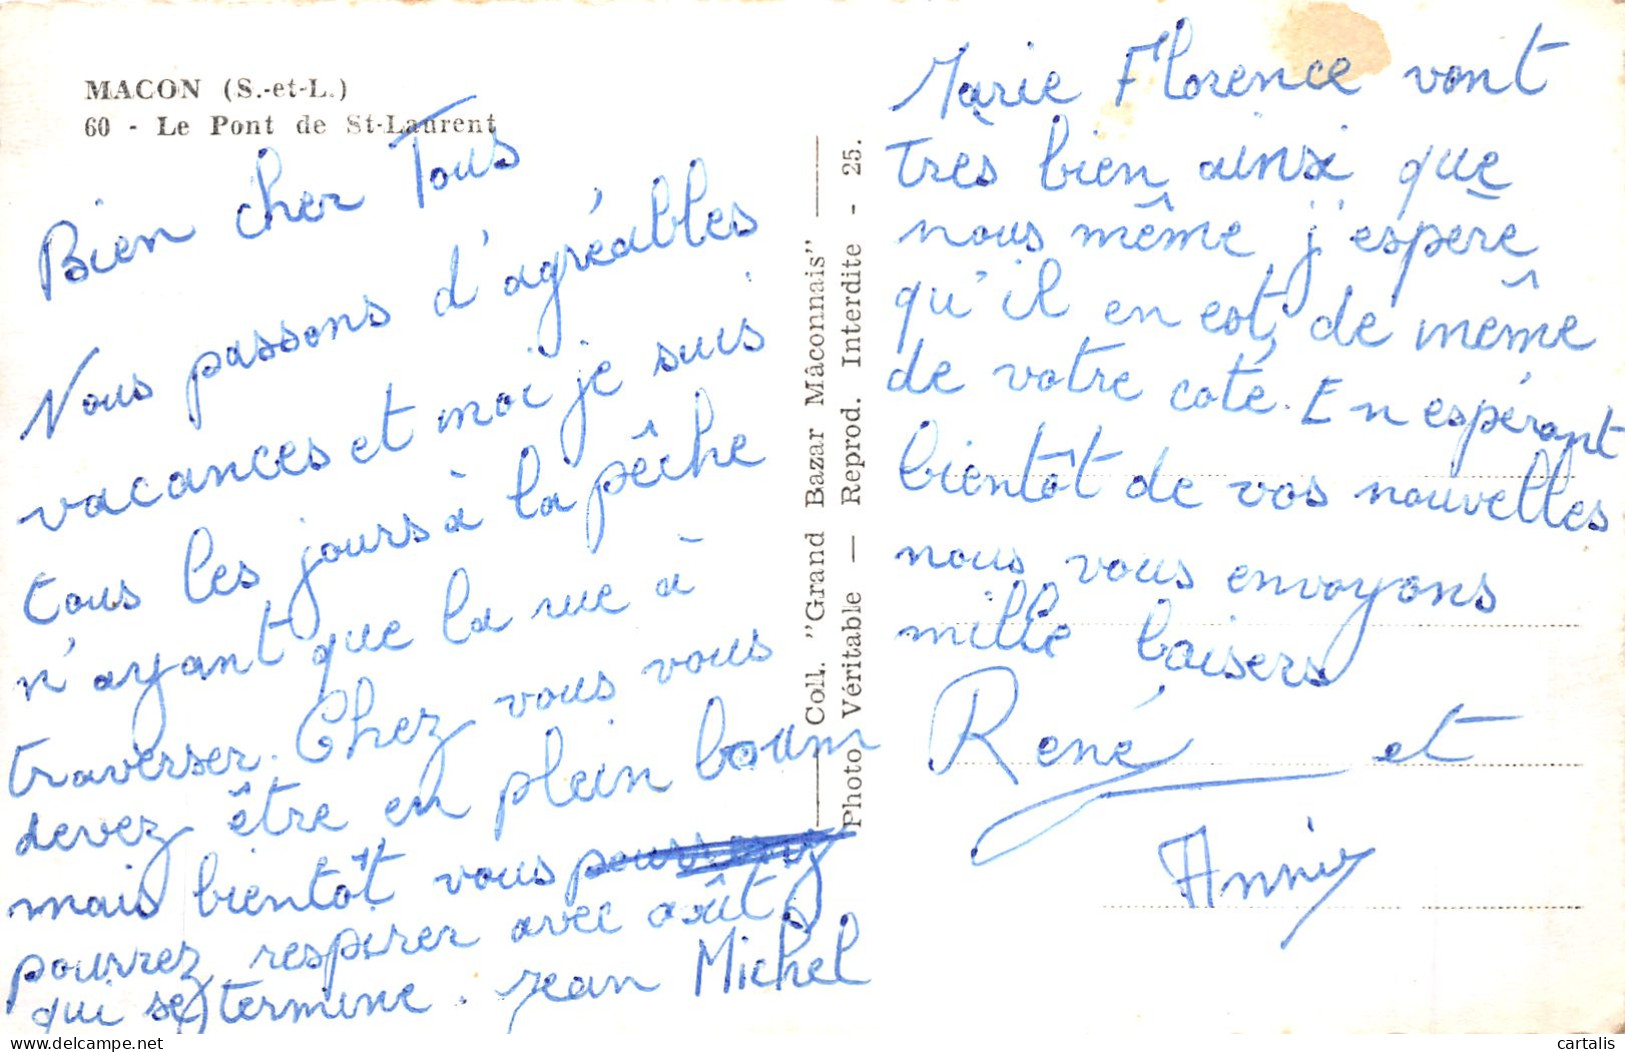 MACON (S.-et-L.)
60 - Le Pont de St-Laurent
Bien cher Tous
Nous passons d'agréables
vacances et moi je suis
tous les jours à la pêche
n'ayant que la rue à
traverser. Chez vous vous
devez être en plein boum
mais bientôt vous
pourrez respirer avec août
qui se termine. Jean Michel
Coll. "Grand Bazar Mâconnais"
Photo Véritable — Reprod. Interdite - 25.
Marie Florence vont
tres bien ainsi que
nous même j'espère
qu'il en est, de même
de votre coté. En espérant
bientôt de vos nouvelles
nous vous envoyons
mille baisers
René et
Anny
cartalis